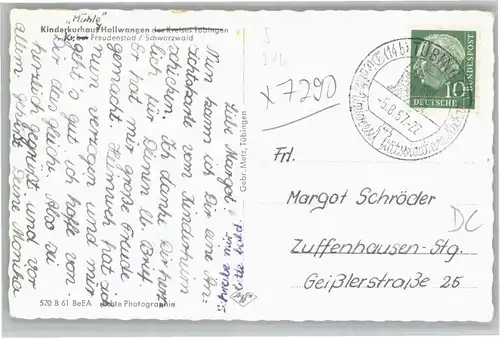 "Mühle"
Kinderkurhaus Hallwangen des Kreises Tübingen
Kr. Freudenstadt / Schwarzwald
Liebe Margot!
Nun kann ich Dir eine An-
sichtskarte vom Kinderheim
schicken. Ich danke Dir herz-
lich für Deinen lb. Brief.
Er hat mir große Freude
gemacht. Heimweh hat sich
nun verzogen und mir
geht's gut ich hoffe von
Dir das Gleiche. Also zu
herzlich gegrüßt und vor
allem
Deine Monika
Schreibe mir
bitte bald.
Gebr. Metz, Tübingen
520 B 61 BeEA Echte Photographie
Agfa
x 7290
(14b) TÜBINGEN
-5.8.57-22
DEUTSCHE BUNDESPOST
10
Frl.
Margot Schröder
Zuffenhausen-Stg.
Geißlerstraße 25
DC